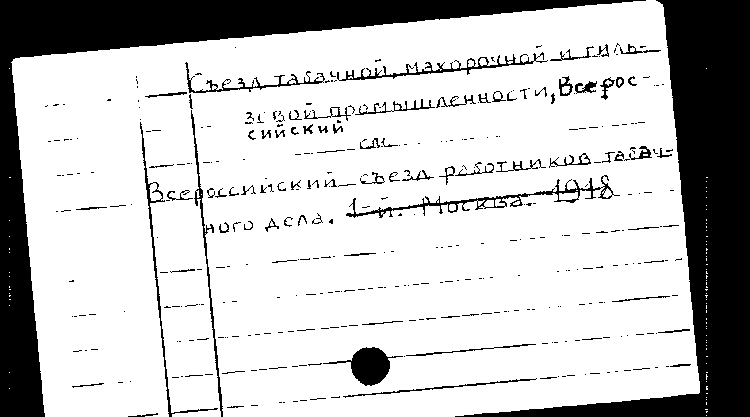 Съезд табачной, махорочной и гиль-
зовой промышленности, Всерос-
сийский
см.
Всероссийский съезд работников табач-
ного дела. 1-й. Москва. 1918